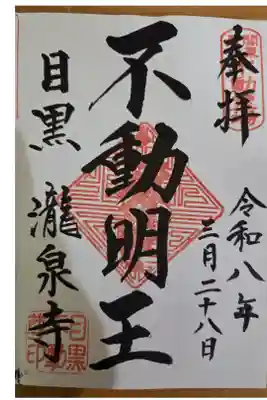 奉拝
令和八年
三月二十八日
不動明王
目黒 瀧泉寺